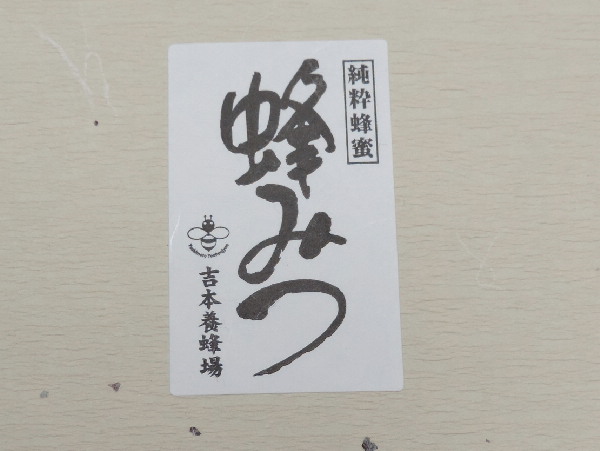 純粋蜂蜜
蜂みつ
吉本養蜂場